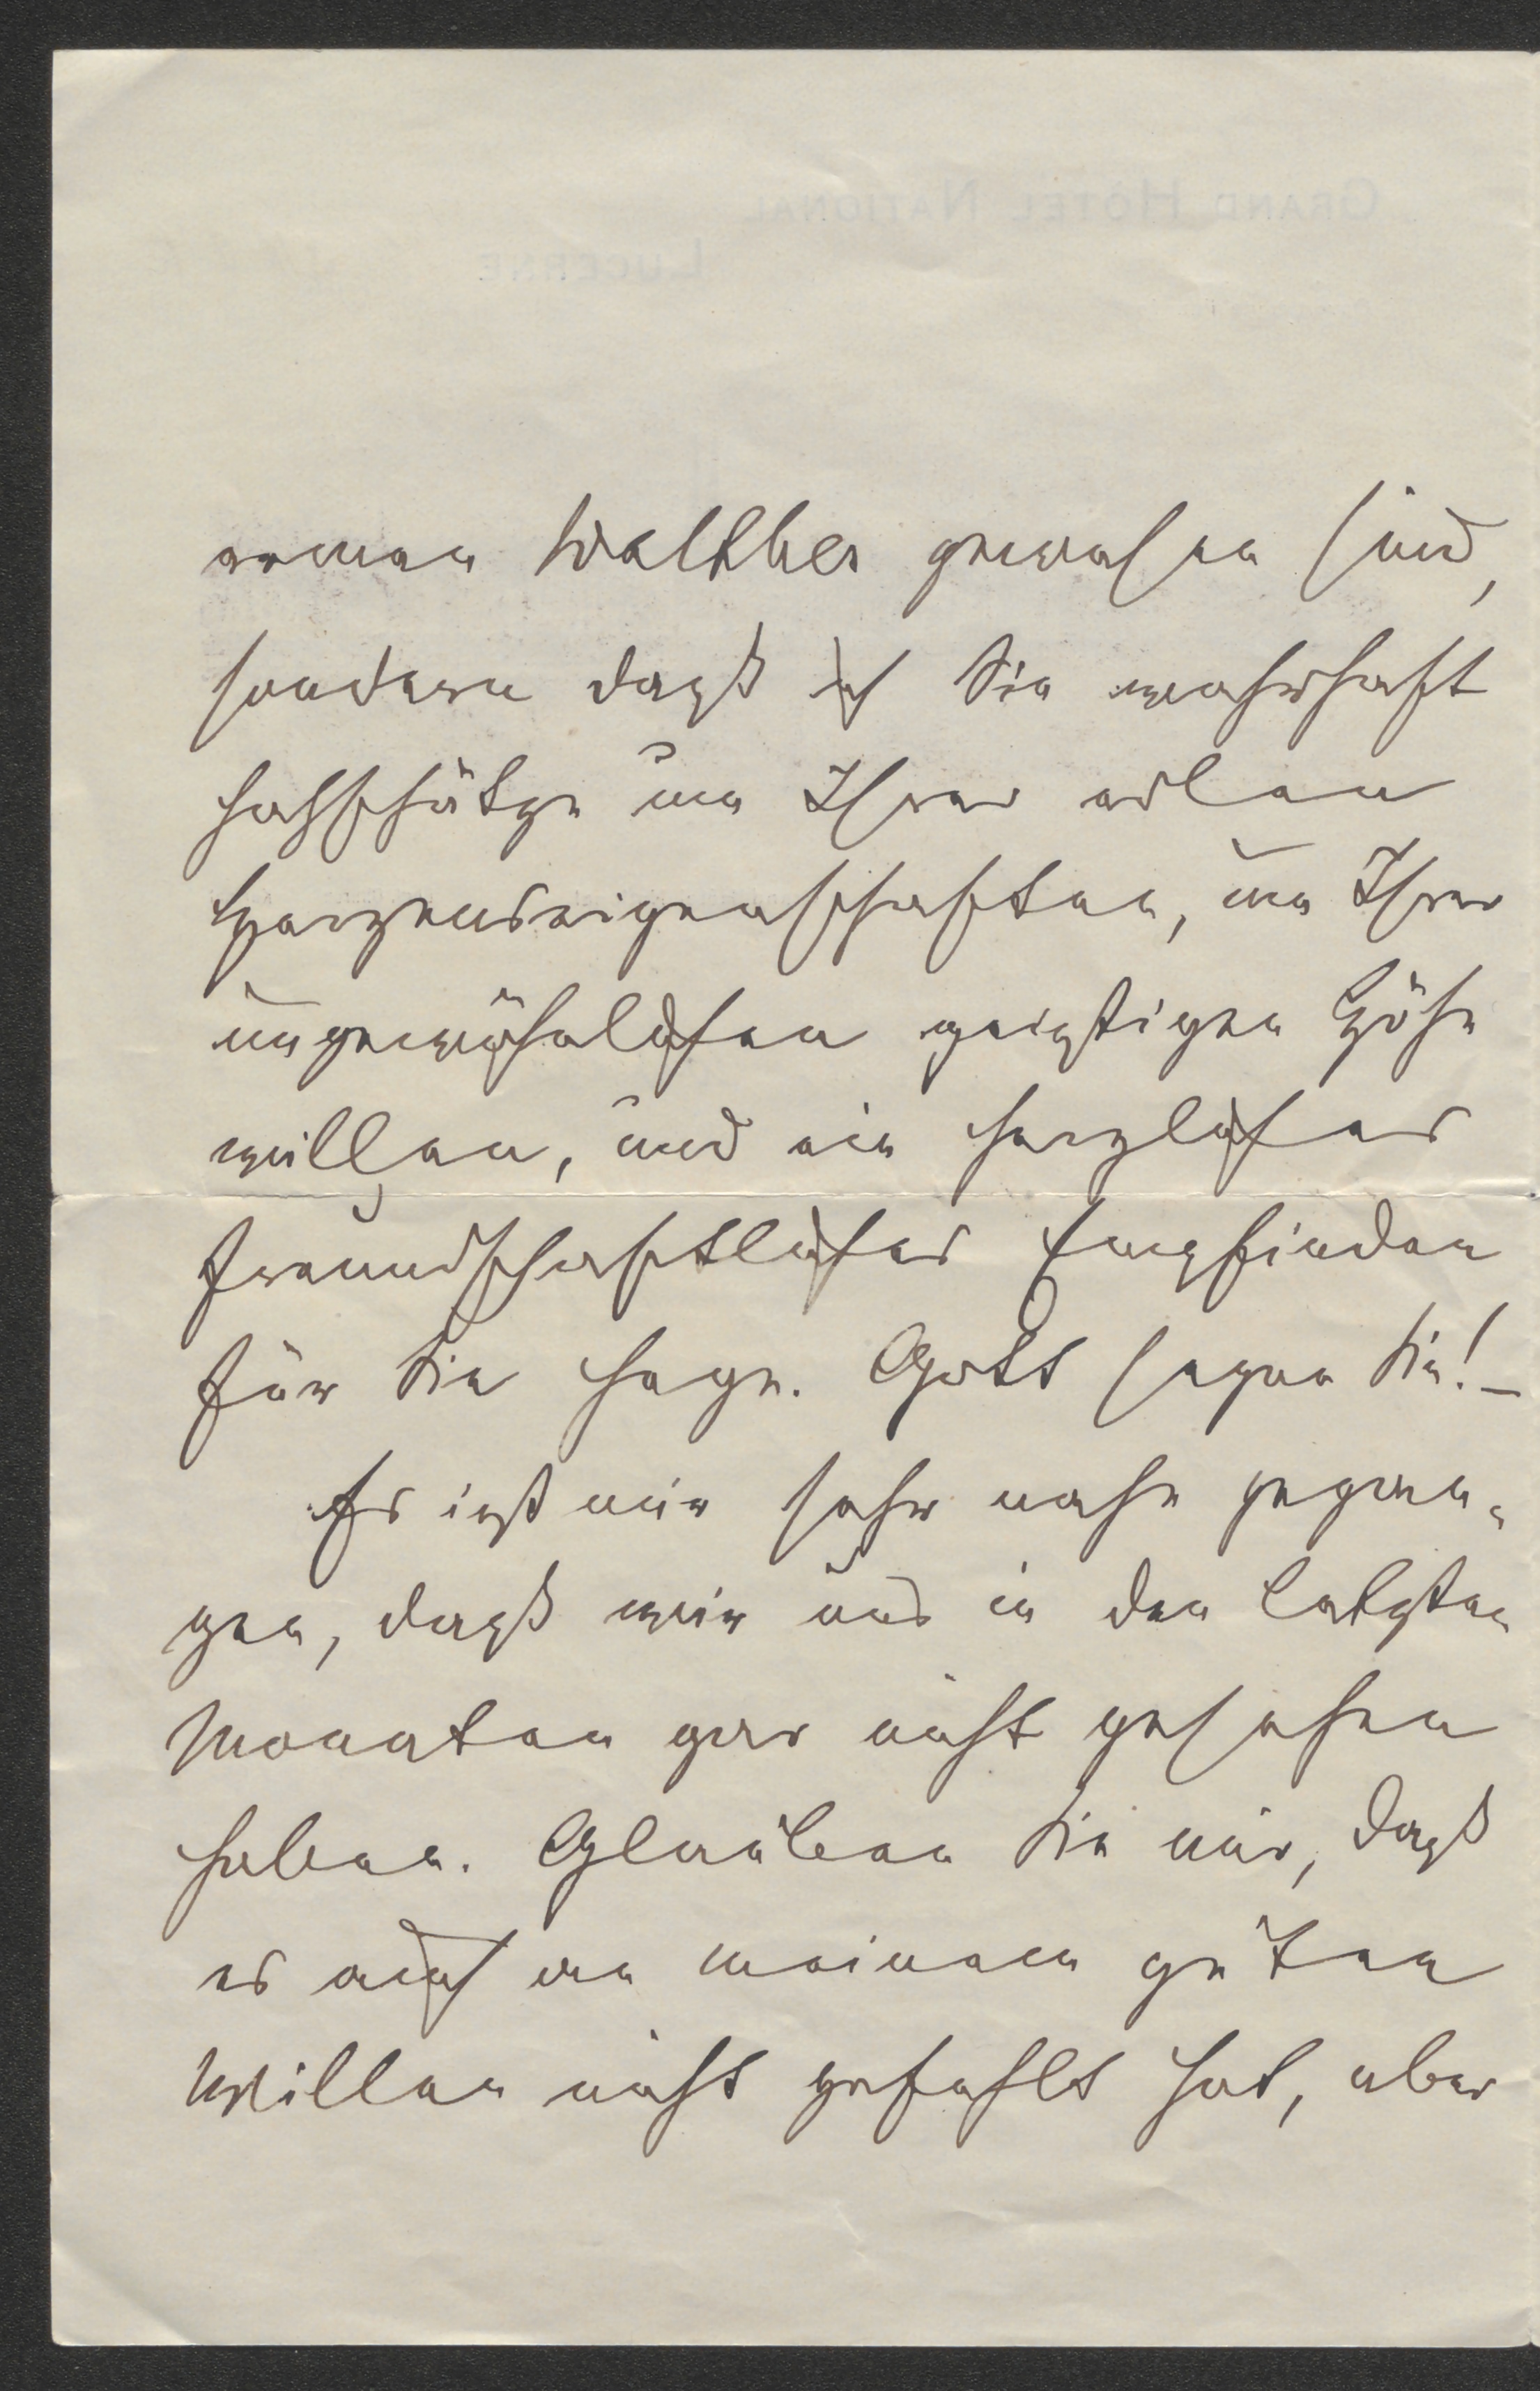 GRAND HÔTEL NATIONAL
LUCERNE
armen Walther gewesen sind,
sondern daß ich Sie wahrhaft
hochschätze um Ihrer edlen
Herzenseigenschaften, um Ihrer
ungewöhnlichen geistigen Höhe
willen, und ein herzliches
freundschaftliches Empfinden
für Sie hege. Gott segne Sie!–
Es ist mir sehr nahe gegan-
gen, daß wir uns in den letzten
Monaten gar nicht gesehen
haben. Glauben Sie mir, daß
es auch an meinem guten
Willen nicht gefehlt hat, aber